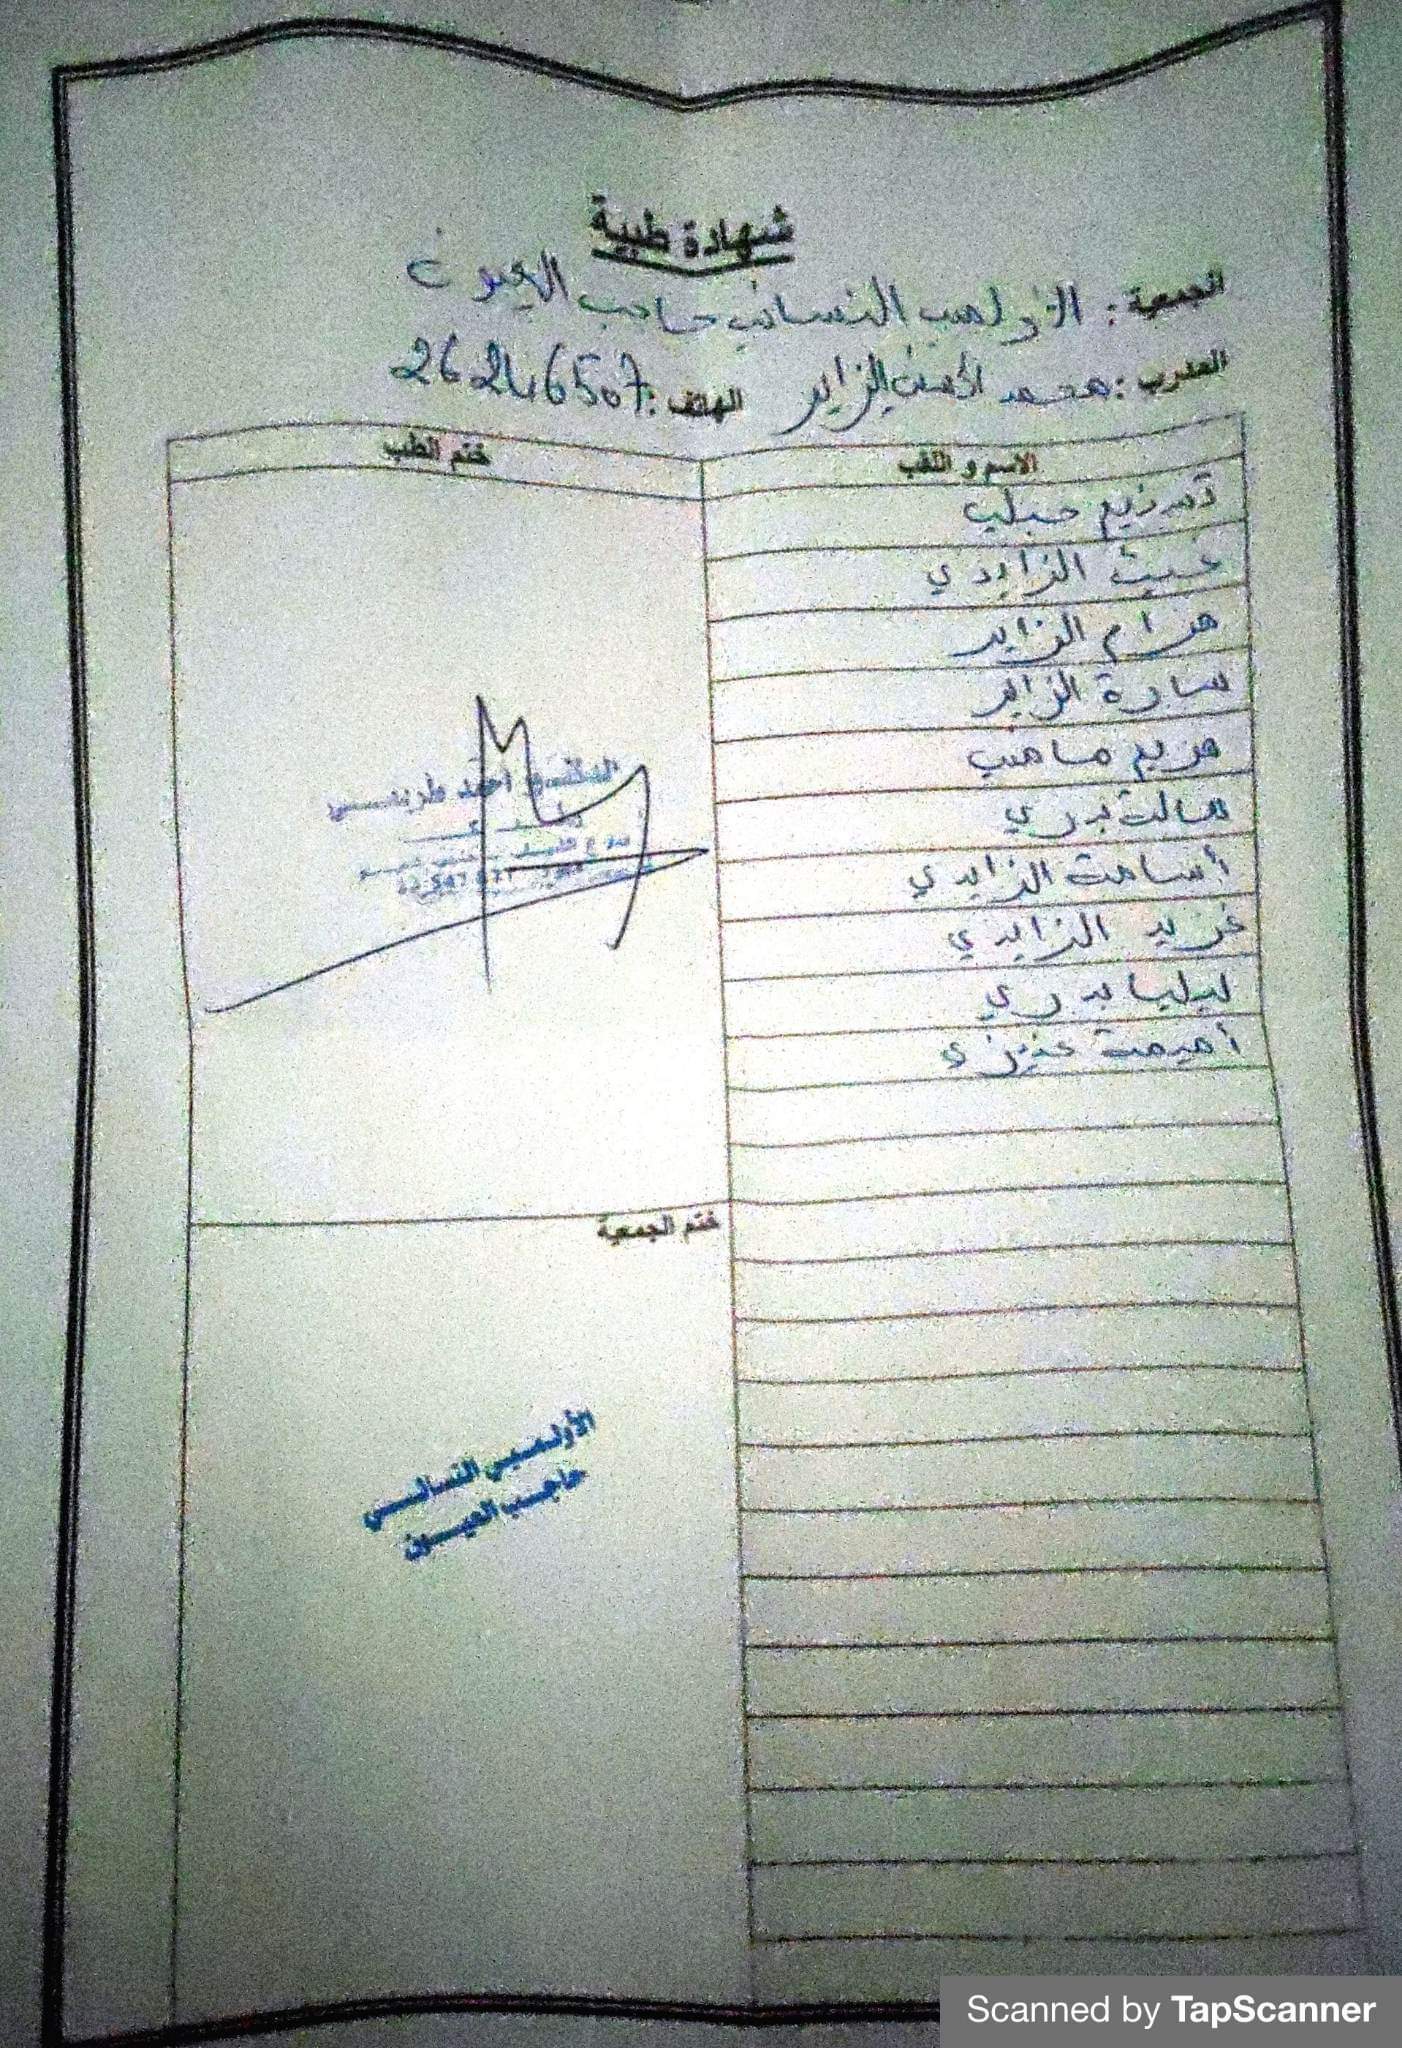 شهادة طبية
الجمعية : الأولمبي النسائي حاجب العيون
المدرب : محمد الأمين الزاير الهاتف : 26246507
الاسم و اللقب
ختم الطب
تسنيم جبلي
غيث الزايدي
مرام الزاير
سارة الزاير
مريم
هالة بدري
أسامة الزايدي
الزايدي
ليليا بدري
أميمة عزيزي
احمد
ختم الجمعية
الأولمبي النسائي
حاجب العيون
Scanned by TapScanner